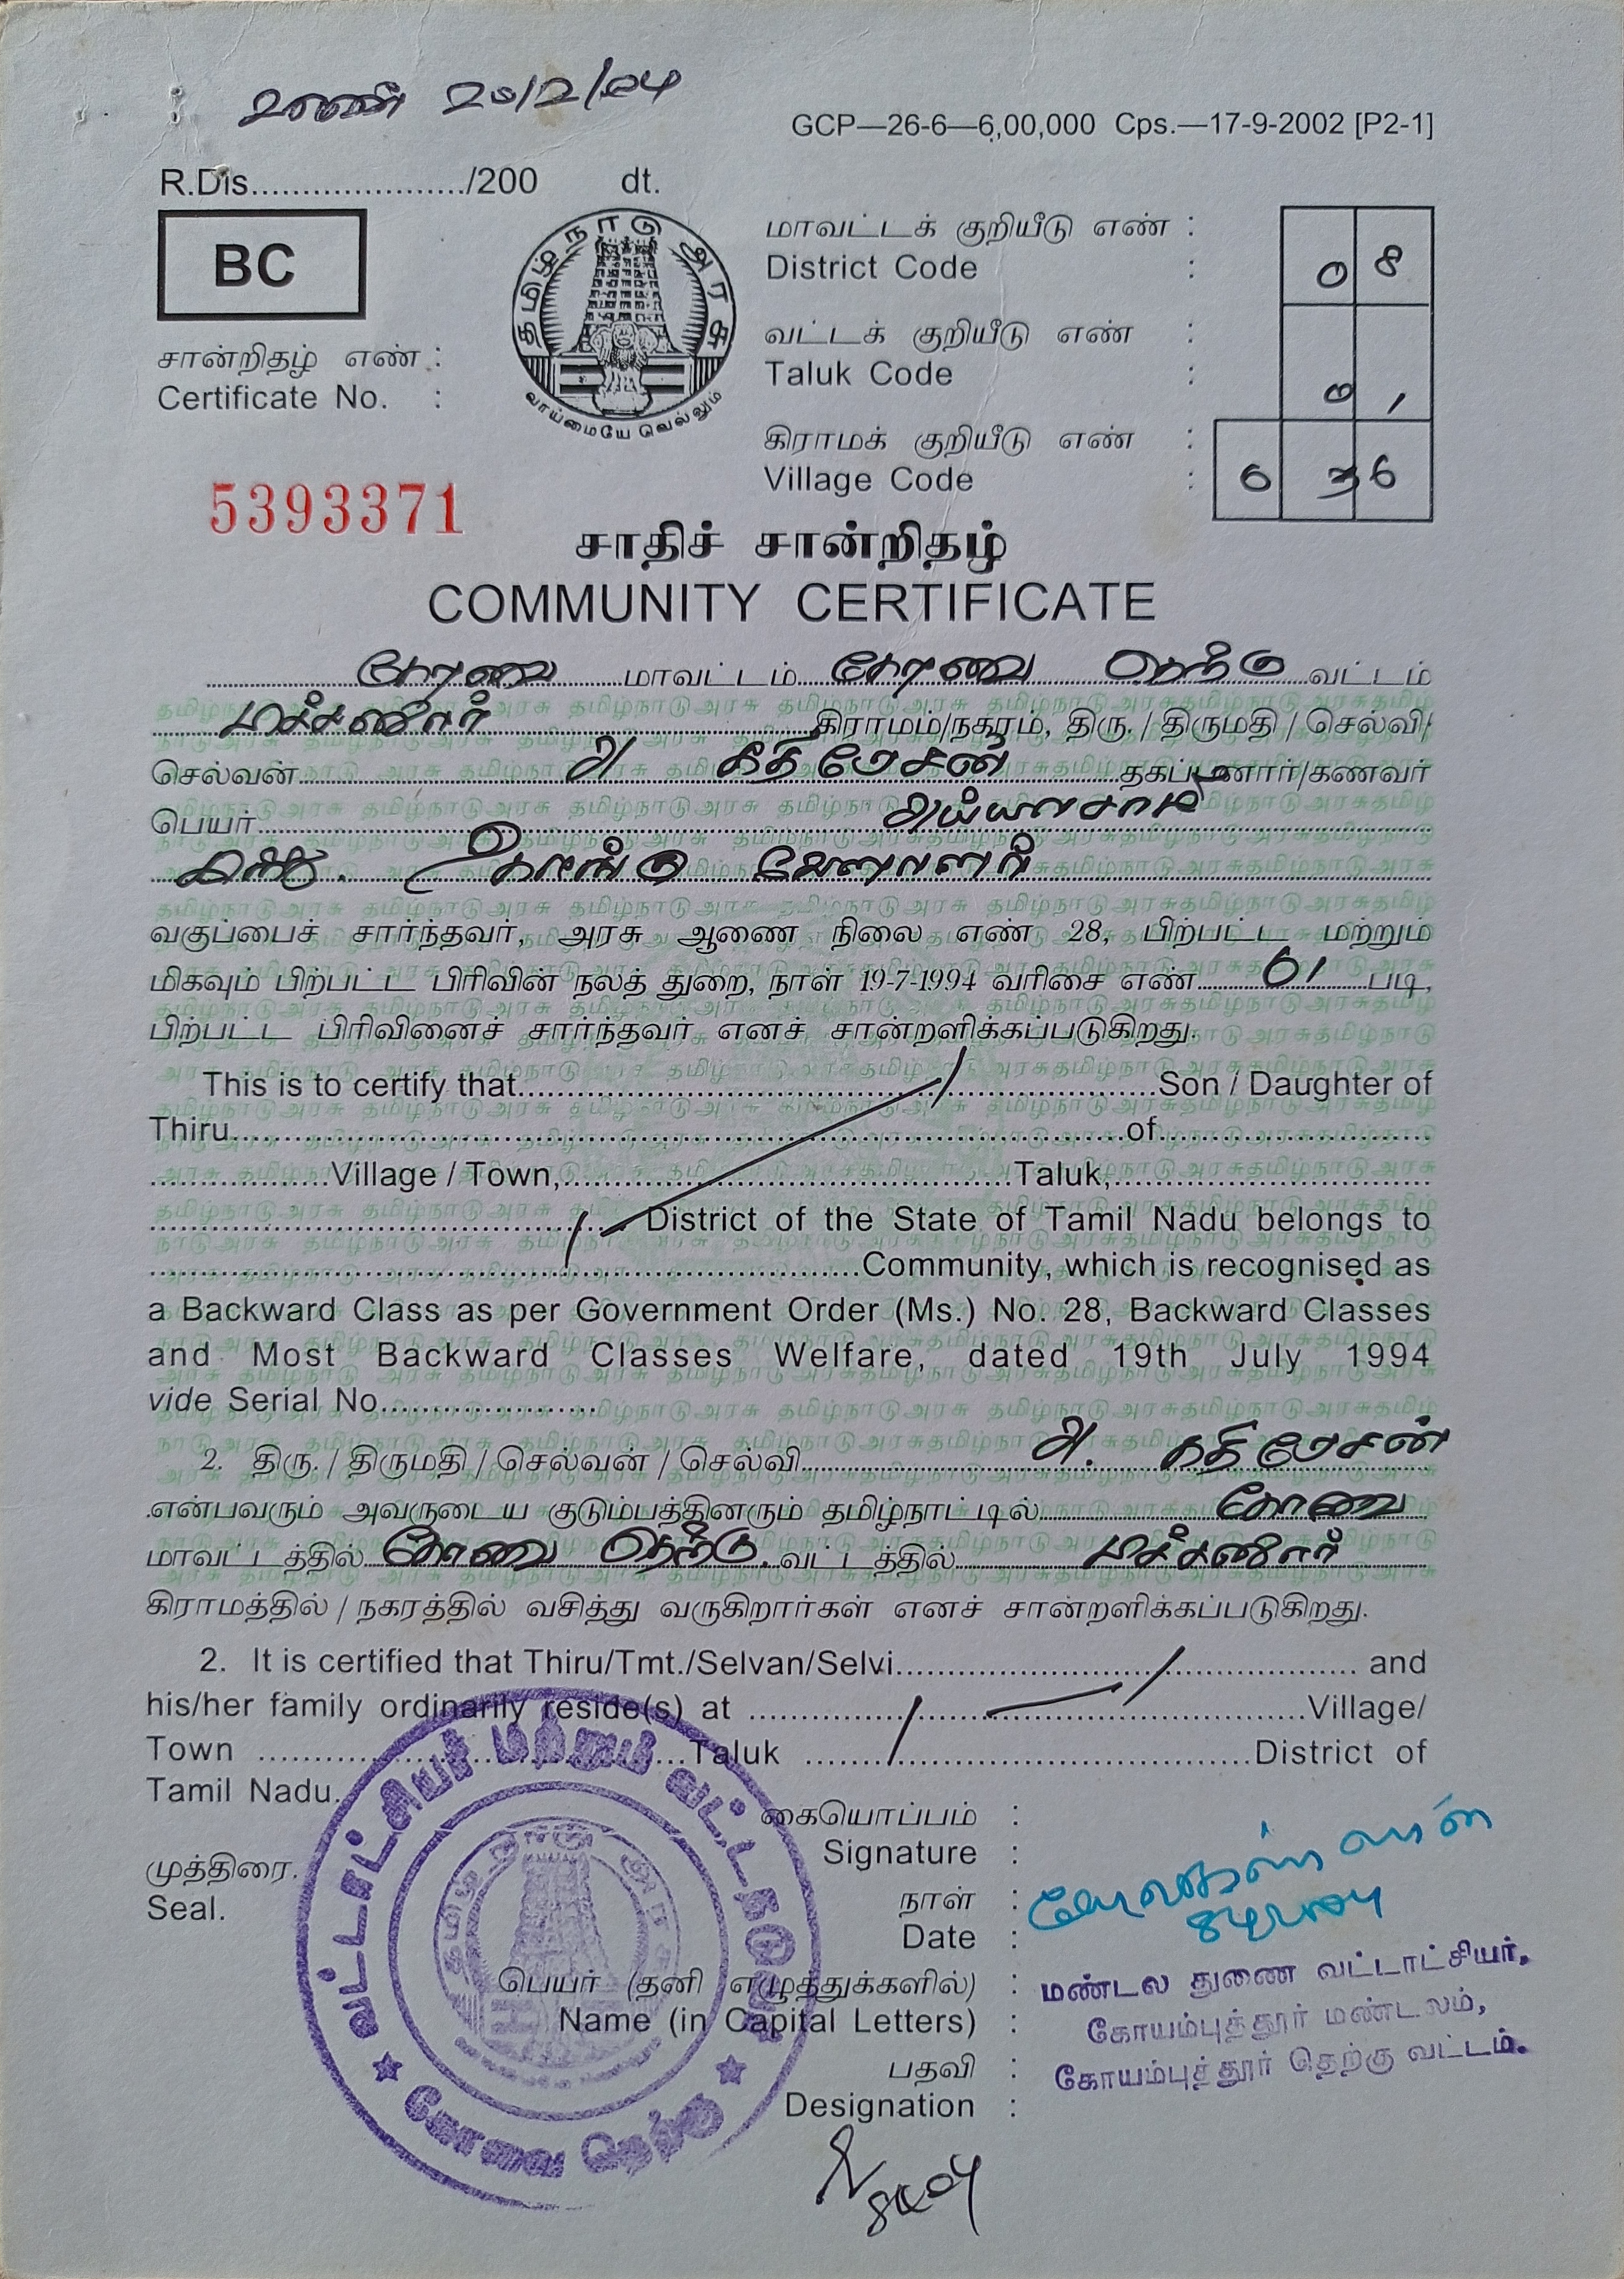 20/2/04
GCP—26-6—6,00,000 Cps.—17-9-2002 [P2-1]
R.Dis...................../200 dt.
BC
தமிழ்நாடு அரசு
வாய்மையே வெல்லும்
மாவட்டக் குறியீடு எண் :
District Code : 08
வட்டக் குறியீடு எண் :
Taluk Code : 01
கிராமக் குறியீடு எண் :
Village Code : 036
சான்றிதழ் எண் :
Certificate No. :
5393371
சாதிச் சான்றிதழ்
COMMUNITY CERTIFICATE
கோவை மாவட்டம் கோவை தெற்கு வட்டம்
மாச்சனூர் கிராமம்/நகரம், திரு./திருமதி/செல்வி/
செல்வன் அ கதிமேசன் தகப்பனார்/கணவர்
பெயர் அய்யாசாமி
இந்து. கொங்கு வேளாளர்
வகுப்பைச் சார்ந்தவர், அரசு ஆணை நிலை எண் 28, பிற்பட்ட மற்றும்
மிகவும் பிற்பட்ட பிரிவின் நலத் துறை, நாள் 19-7-1994 வரிசை எண் 01 படி,
பிற்பட்ட பிரிவினைச் சார்ந்தவர் எனச் சான்றளிக்கப்படுகிறது.
This is to certify that..........Son / Daughter of
Thiru..........of..........
..........Village / Town,..........Taluk,..........
..........District of the State of Tamil Nadu belongs to
..........Community, which is recognised as
a Backward Class as per Government Order (Ms.) No. 28, Backward Classes
and Most Backward Classes Welfare, dated 19th July 1994
vide Serial No..........
2. திரு./திருமதி/செல்வன்/செல்வி அ. கதிமேசன்
என்பவரும் அவருடைய குடும்பத்தினரும் தமிழ்நாட்டில் கோவை
மாவட்டத்தில் கோவை தெற்கு வட்டத்தில் மாச்சனூர்
கிராமத்தில்/நகரத்தில் வசித்து வருகிறார்கள் எனச் சான்றளிக்கப்படுகிறது.
2. It is certified that Thiru/Tmt./Selvan/Selvi.......... and
his/her family ordinarily reside(s) at ..........Village/
Town ..........Taluk ..........District of
Tamil Nadu.
கையொப்பம் :
Signature :
முத்திரை.
Seal.
நாள் :
Date :
பெயர் (தனி எழுத்துக்களில்) :
Name (in Capital Letters) :
பதவி :
Designation :
மண்டல துணை வட்டாட்சியர்,
கோயம்புத்தூர் மண்டலம்,
கோயம்புத்தூர் தெற்கு வட்டம்.
வட்டாட்சியர் மற்றும் வட்ட
கோவை தெற்கு